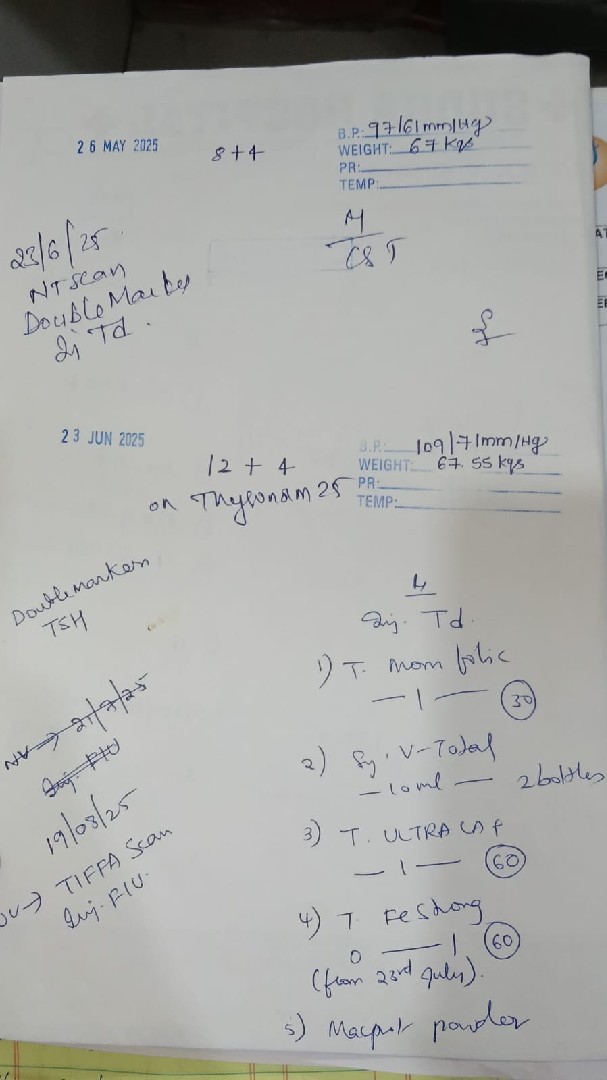 26 MAY 2025
8+4
B.P.: 97/61mm/Hg
WEIGHT: 67 Kgs
PR:
TEMP:
23/6/25
NT scan
Double Marker
Inj Td.
CST
23 JUN 2025
12 + 4
on Thyronorm 25
B.P.: 109/71mm/Hg
WEIGHT: 67.55 kgs
PR:
TEMP:
Doublemarkers
TSH
NV → 21/7/25
Inj. FIU
19/08/25
NV → TIFFA Scan
Inj. FIU.
Inj. Td.
1) T. Mom folic
— 1 — 30
2) Sy. V-Total
— 10ml — 2 bottles
3) T. ULTRA CAP
— 1 — 60
4) T. Fe Strong
0 — 1 60
(from 23rd July).
5) powder